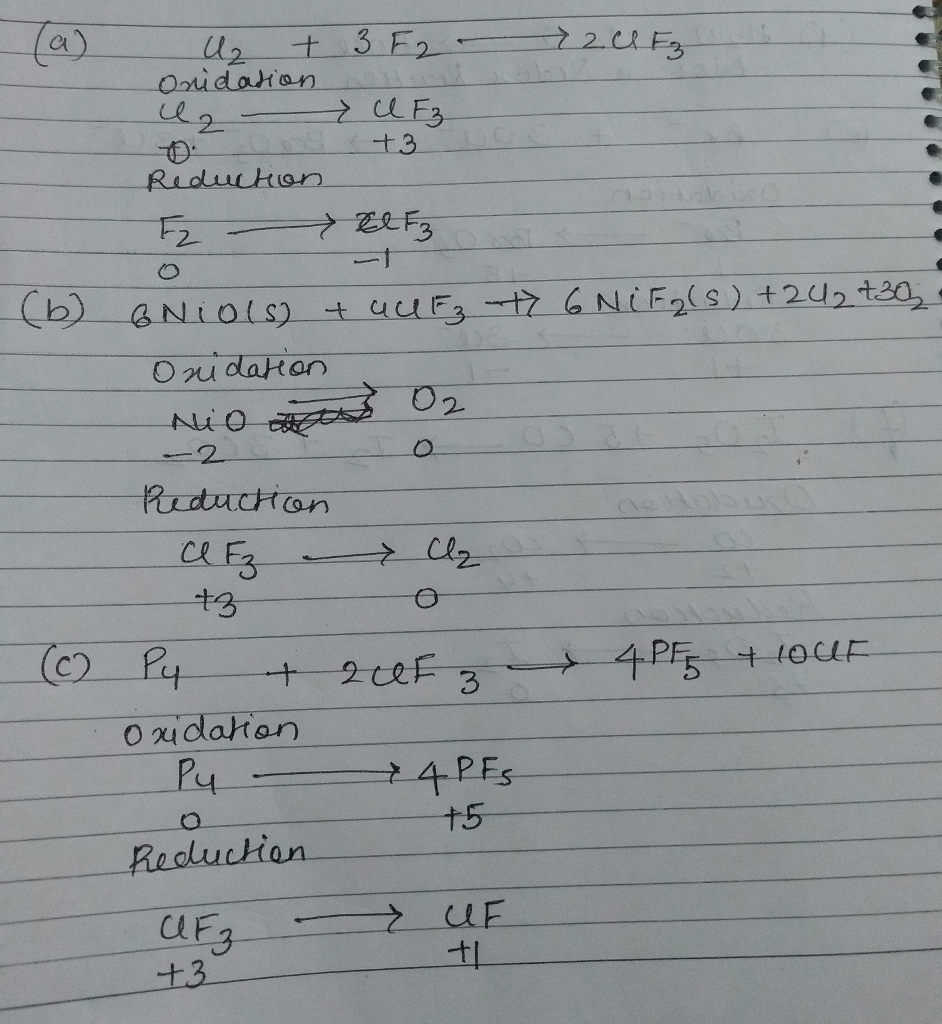 (a) Cl2 + 3F2 → 2ClF3
Oxidation
Cl2 → ClF3
0 +3
Reduction
F2 → ClF3
0 -1
(b) 6NiO(s) + 4ClF3 → 6NiF2(s) + 2Cl2 + 3O2
Oxidation
NiO → O2
-2 0
Reduction
ClF3 → Cl2
+3 0
(c) P4 + 2ClF3 → 4PF5 + 10ClF
Oxidation
P4 → 4PF5
0 +5
Reduction
ClF3 → ClF
+3 +1